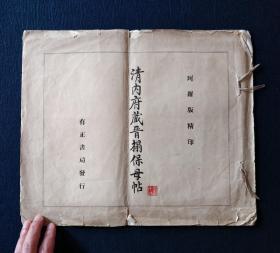 珂羅版精印
清內府藏晉搨保母帖
有正書局發行